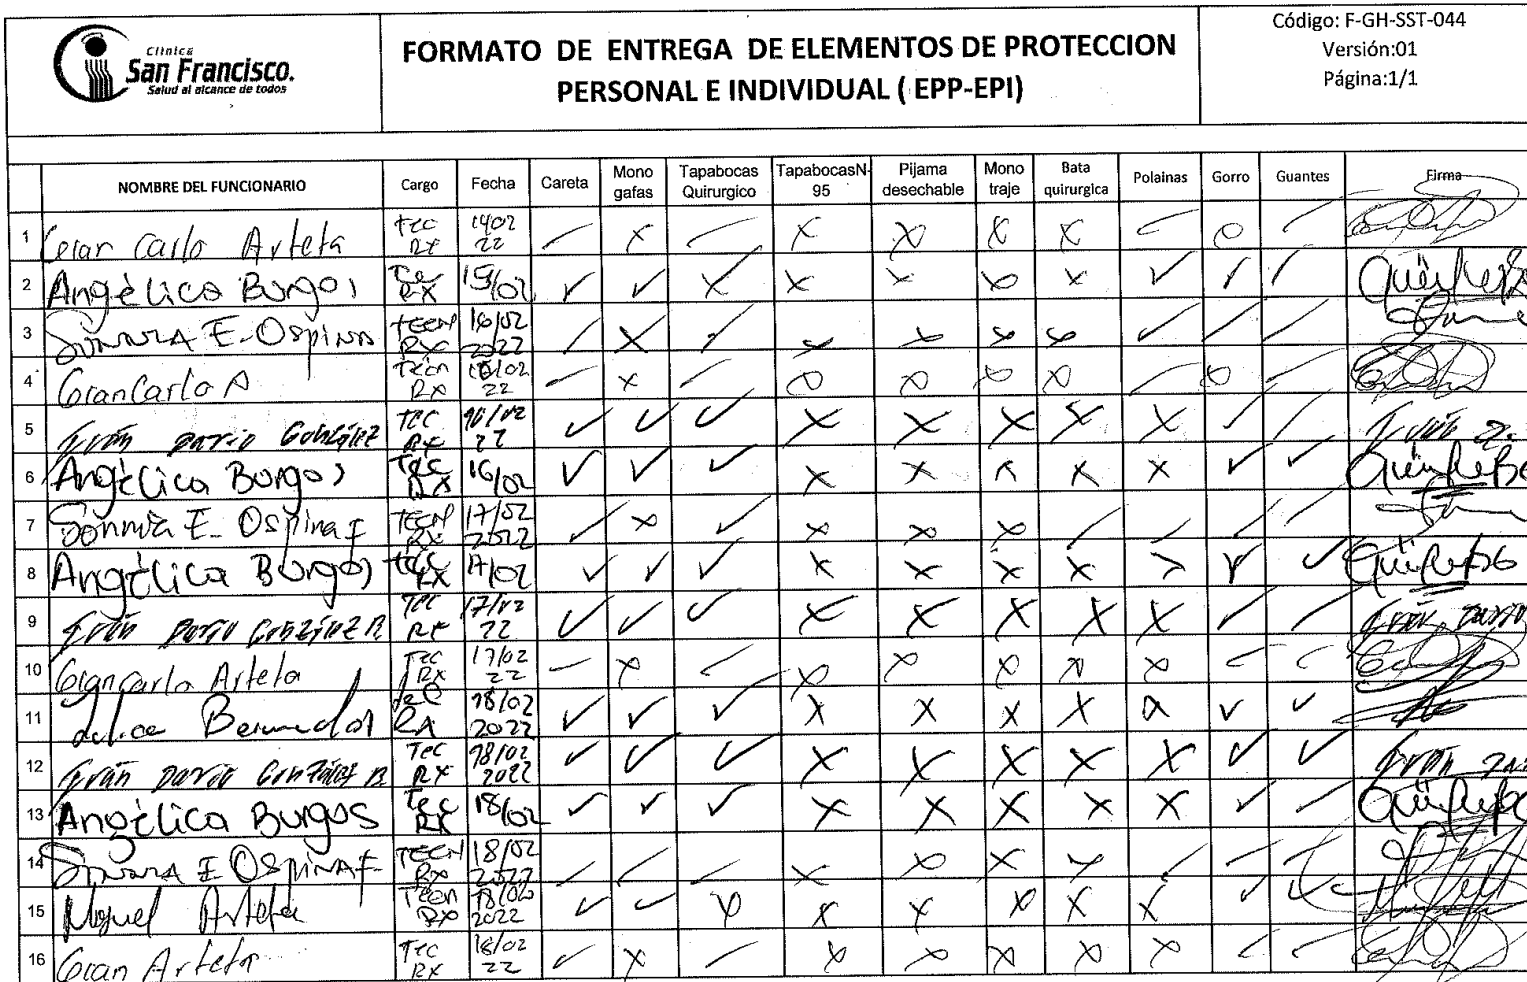 Clínica
San Francisco.
Salud al alcance de todos
FORMATO DE ENTREGA DE ELEMENTOS DE PROTECCION
PERSONAL E INDIVIDUAL ( EPP-EPI)
Código: F-GH-SST-044
Versión:01
Página:1/1
NOMBRE DEL FUNCIONARIO Cargo Fecha Careta Mono gafas Tapabocas Quirurgico TapabocasN-95 Pijama desechable Mono traje Bata quirurgica Polainas Gorro Guantes Firma
1 Carlo Arteta Tec RX 1402 22
2 Angélica Burgos Tec RX 15/02
3 E. Ospina TECN RX 16/02 2022
4 Giancarlo A Tecn RX 22
5 Iván Dario González TEC RX 16/02 22
6 Angélica Burgos Tec RX 16/02
7 Sonnia E. Ospina F TECN RX 17/02 2022
8 Angélica Burgos Tec RX 17/02
9 Iván Dario González B. TEC RX 17/02 22
10 Giancarlo Arteta Tec RX 17/02 22
11 Tec RX 18/02 2022
12 Iván Dario González B Tec RX 18/02 2022
13 Angélica Burgos Tec RX 18/02
14 E Ospina F. TECN RX 18/02 2022
15 Miguel Arteta Tecn RX 18/02 2022
16 Gian Arteta Tec RX 18/02 22